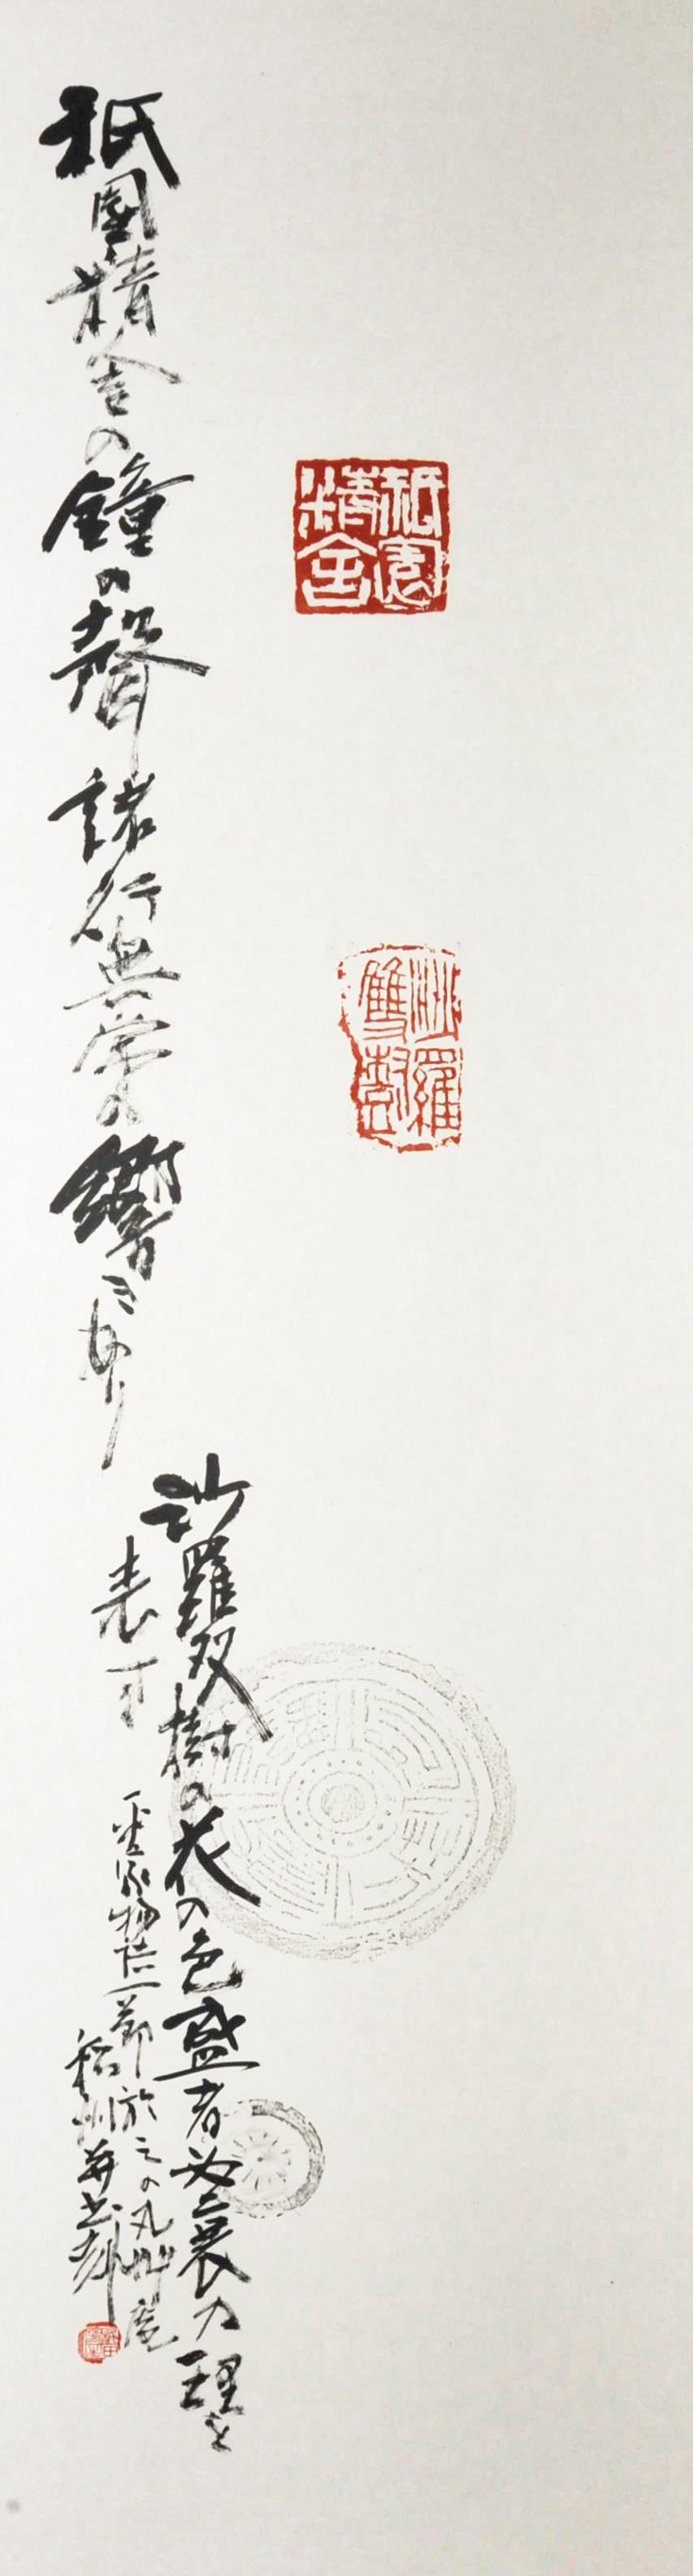 祇園精舎
沙羅雙樹
祇園精舎の鐘の聲諸行無常の響きあり
沙羅双樹の花の色盛者必衰の理を
表す
平家物語一節於
并書刻